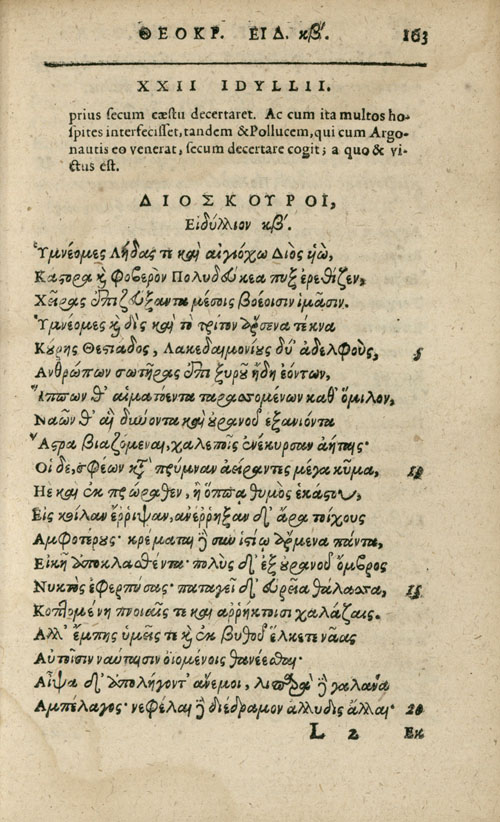 ΘΕΟΚΡ. ΕΙΔ. κβ΄. 163
XXII IDYLLII.
prius secum cæstu decertaret. Ac cum ita multos ho-
spites interfecisset, tandem & Pollucem, qui cum Argo-
nautis eo venerat, secum decertare cogit; a quo & vi-
ctus est.
ΔΙΟΣΚΟΥΡΟΙ,
Εἰδύλλιον κβ΄.
Ὑμνέομες Λήδας τε καὶ αἰγιόχω Διὸς ἡώ,
Κάστορα καὶ φοβερὸν Πολυδεύκεα πὺξ ἐρεθίζεν,
Χεῖρας ἐπιζεύξαντα μέσοις βοέοισιν ἱμᾶσιν.
Ὑμνέομες καὶ δὶς καὶ τὸ τρίτον ἄρσενα τέκνα
Κύρης Θεστιάδος, Λακεδαιμονίους δύ' ἀδελφοὺς, 5
Ανθρώπων σωτῆρας ἐπὶ ξυροῦ ἤδη ἐόντων,
Ἵππων θ' αἱματόεντα ταρασσομένων καθ' ὅμιλον,
Ναῶν θ' αἳ δύνοντα καὶ οὐρανοῦ ἐξανιόντα
Ἄστρα βιαζόμεναι, χαλεποῖς ἐνέκυρσαν ἀήταις·
Οἱ δὲ, σφέων κατὰ πρύμναν ἀείραντες μέγα κῦμα, 10
Ηὲ καὶ ἐκ πρώραθεν, ἢ ὅππα θυμὸς ἑκάστου,
Εἰς κοίλαν ἔῤῥιψαν, ἀνέῤῥηξαν δ' ἄρα τοίχους
Αμφοτέρους· κρέμαται δὲ σὺν ἱστίῳ ἄρμενα πάντα,
Εἰκῆ ἀποκλασθέντα· πολὺς δ' ἐξ οὐρανοῦ ὄμβρος
Νυκτὸς ἐφερπύσας· παταγεῖ δ' εὐρεῖα θάλασσα, 15
Κοπτομένη πνοιαῖς τε καὶ ἀῤῥήκτοισι χαλάζαις.
Αλλ' ἔμπης ὑμεῖς τε καὶ ἐκ βυθοῦ ἕλκετε νᾶας
Αὐτοῖσιν ναύταισιν ὀϊομένοις θανέεσθαι·
Αἶψα δ' ἀπολήγοντ' ἄνεμοι, λιπαρὰ δὲ γαλάνα
Αμπέλαγος· νεφέλαι δὲ διέδραμον ἄλλυδις ἄλλαι· 20
L 2 Εκ